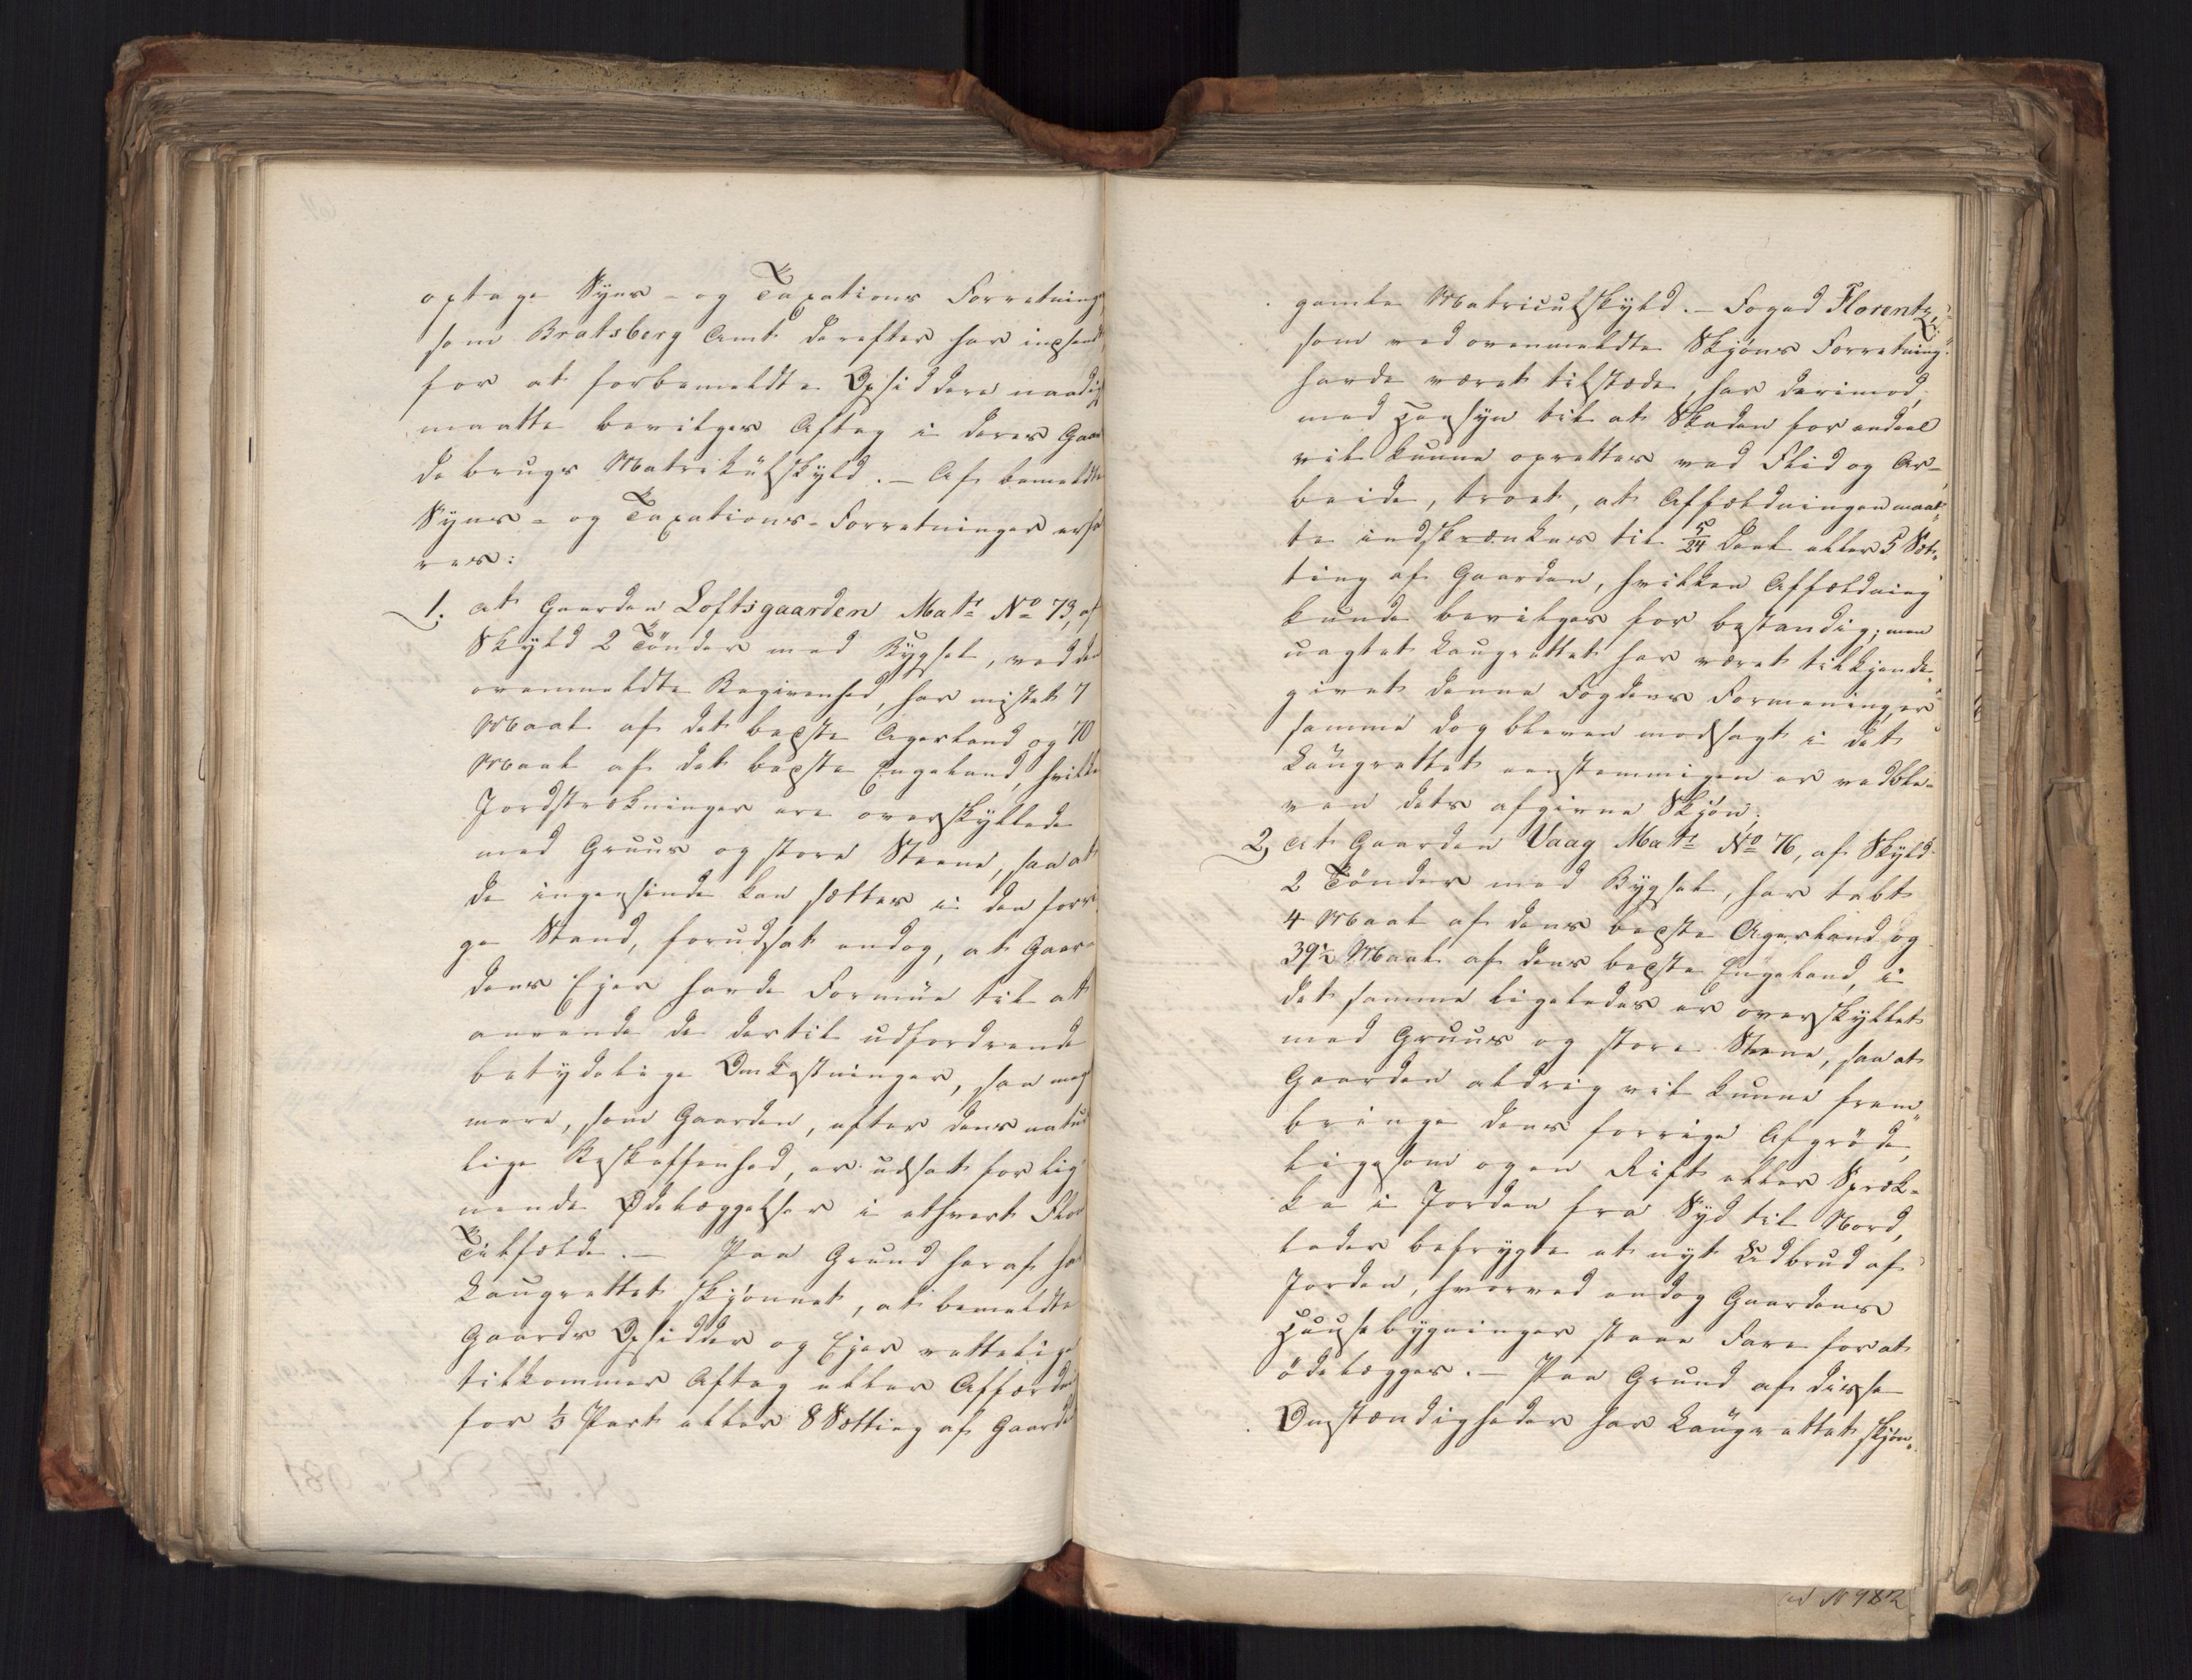 optage Syns- og Taxations Forretning
som Bratsberg Amt derefter har indsendt
for at forbemeldte Opsiddere naadigst
maatte bevilges Aftag i deres Gaar
de brugs Matrikülskyld. – Af bemeldte
Syns- og Taxations-Forretninger erfa
res:
1. at Gaarden Loftsgaarden Matr No 73, af
Skyld 2 Tönder med Bÿgsel, ved den
ovenmeldte Begivenhed, har mistet 7
Maal af det beste Agerland og 70
Maal af det beste Engeland, hvilke
Jordstrækninger ere overskyllede
med Gruus og store Steene, saa at
de ingensinde kan sættes i den forri
ge Stand, forudsat endog, at Gaar-
dens Ejer havde Formüe til at
anvende de dertil udfordrende
betydelige Omkostninger, saa meget
mere, som Gaarden, efter dens natur
lige Beskaffenhed, er udsat for lig
nende Ødelæggelser i ethvert Flom
Tilfælde. – Paa Grund heraf har
Laugrettet skjönnet, at bemeldte
Gaards Opsidder og Ejer rettelig
tilkommer Aftag eller Affældni
for 1/3 Part eller 8 Sætting af Gaarde
gamle Matriculskyld. – Foged Florentz,
som ved ovenmeldte Skjöns Forretning
havde været tilstæde, har derimod,
med Hensyn til at Skaden for endeel
vil kunne oprettes ved Flid og Ar-
beide, troet, at Affældningen maat
te indskrænkes til 5/24 Deel eller 5 Sæt
ting af Gaarden, hvilken Affældning
kunde bevilges for bestandig; men
uagtet Laugrettet har været tilkjende
givet denne Fogdens Formening, er
samme dog bleven modsagt i det
Laügrettet eenstemmigen er vedble-
ven dets afgivne Skjön;
2, at Gaarden Vaag Matr No 76, af Skyld
2 Tönder med Bÿgsel, har tabt
4 Maal af dens beste Agerland og
39½ Maal af dens beste Engeland, i
det samme ligeledes er overskyllet
med Gruus og store Steene, saa at
Gaarden aldrig vil kunne frem
bringe dens forrige Afgröde,
ligesom og en Rift eller Spræk-
ke i Jorden fra Syd til Nord,
lader befrygte et nyt Udbrud af
Jorden, hvorved endog Gaardens
Huusebygninger staae Fare for at
ödelægges. – Paa Grund af disse
Omstændigheder har Laügrettet skjön
ad No 982